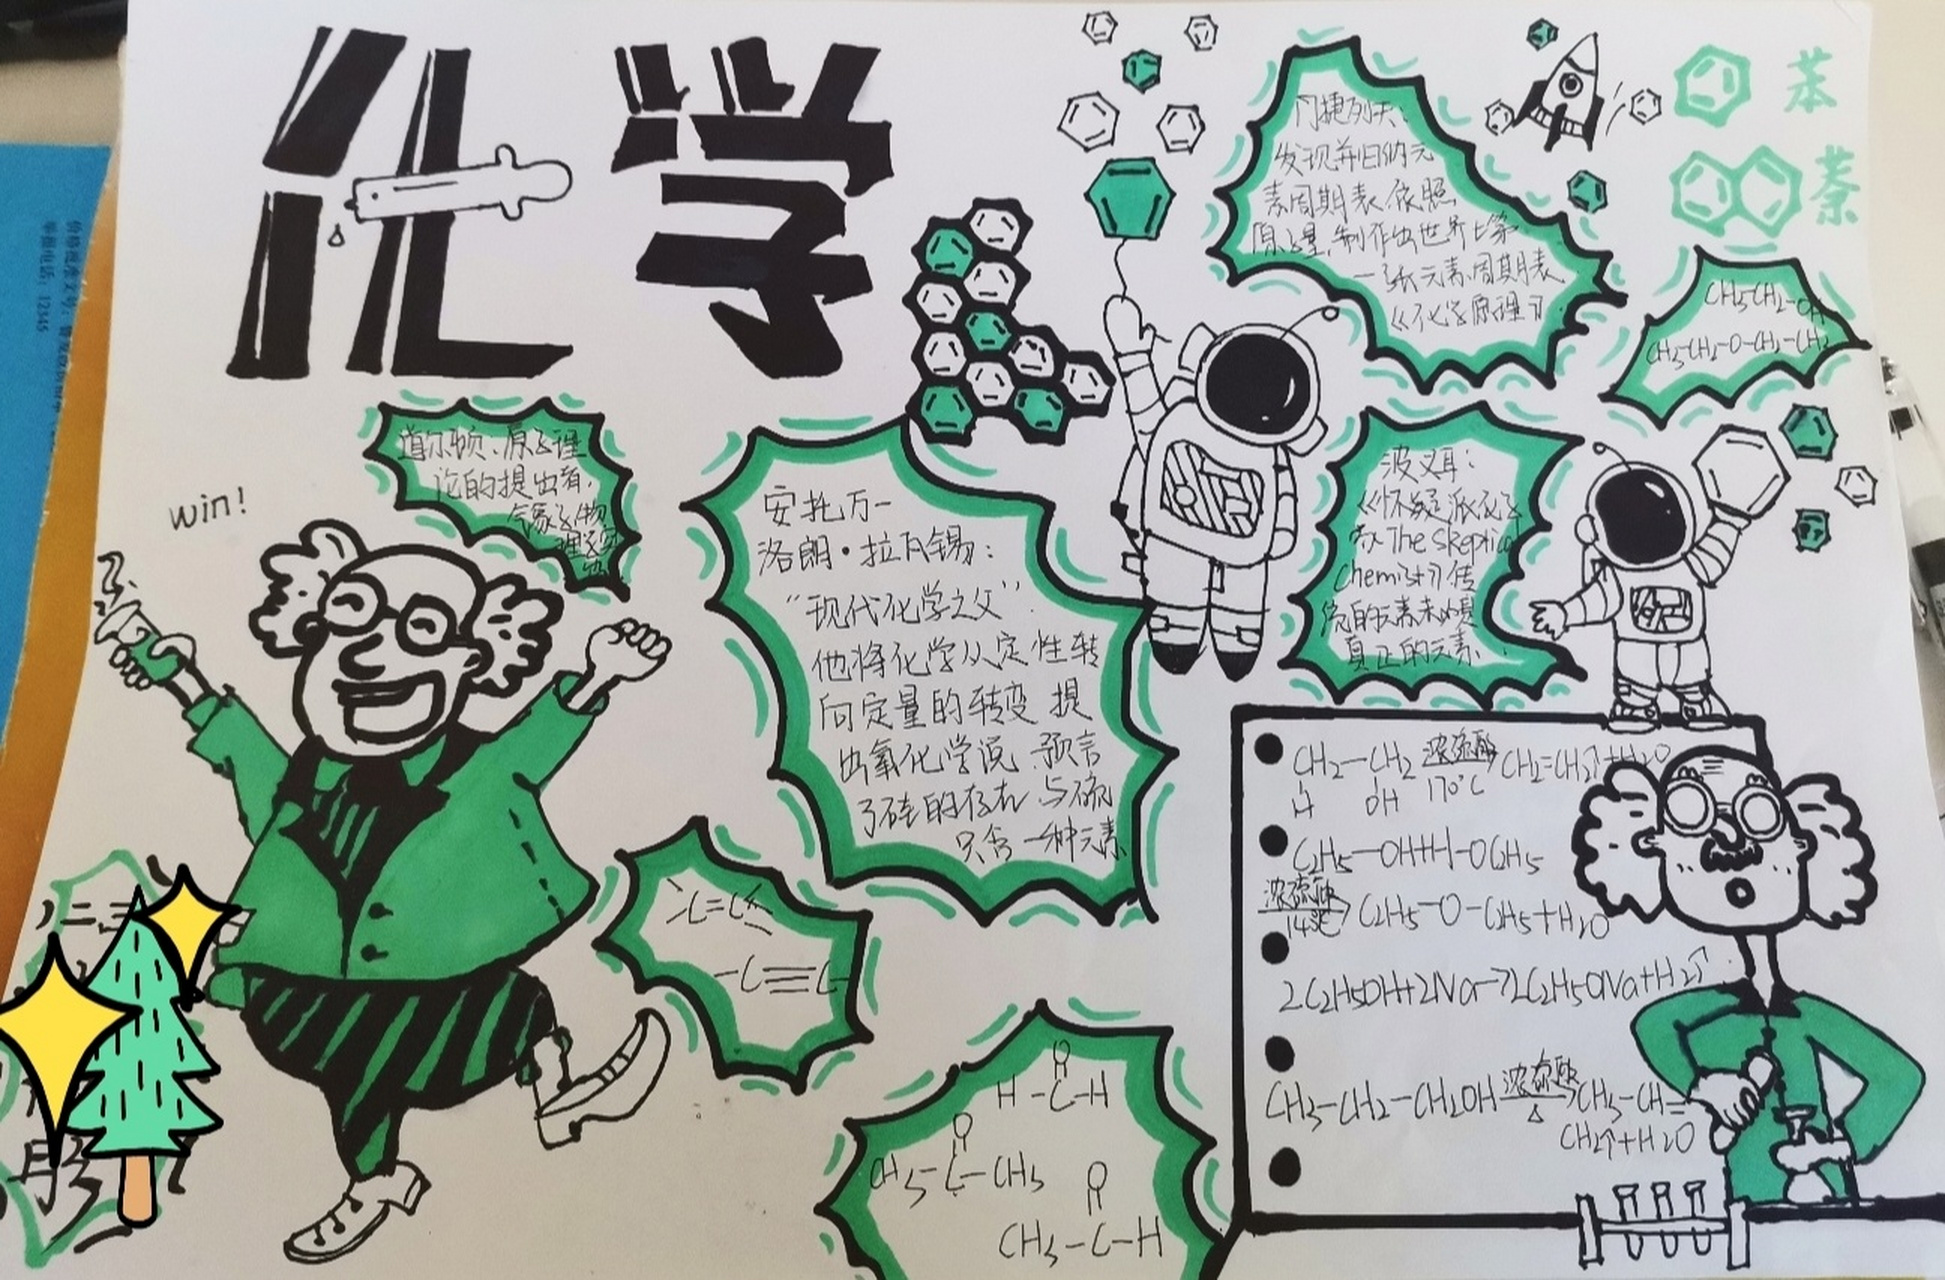 化学
苯
萘
门捷列夫：
发现并归纳元
素周期表，依照
原子量，制作出世界上第
一张元素周期表
《化学原理》
CH3CH2-OH
CH3-CH2-O-CH2-CH3
道尔顿、原子理
论的提出者，
win!
安托万-
洛朗·拉瓦锡：
“现代化学之父”.
他将化学从定性转
向定量的转变 提
出氧化学说 预言
了硅的存在 与硫
只含一种元素
波义耳：
《怀疑派化学
家 The Skeptical
Chemist》传
统的元素未必是
真正的元素.
CH2-CH2 浓硫酸 CH2=CH2↑+H2O
H OH 170℃
C2H5-OH+H-OC2H5
浓硫酸
140℃ C2H5-O-C2H5+H2O
2C2H5OH+2Na→2C2H5ONa+H2↑
CH3-CH2-CH2OH 浓硫酸 CH3-CH=
△ CH2↑+H2O
C=C
-C≡C
O
H-C-H
O
CH3-C-CH3
O
CH3-C-H